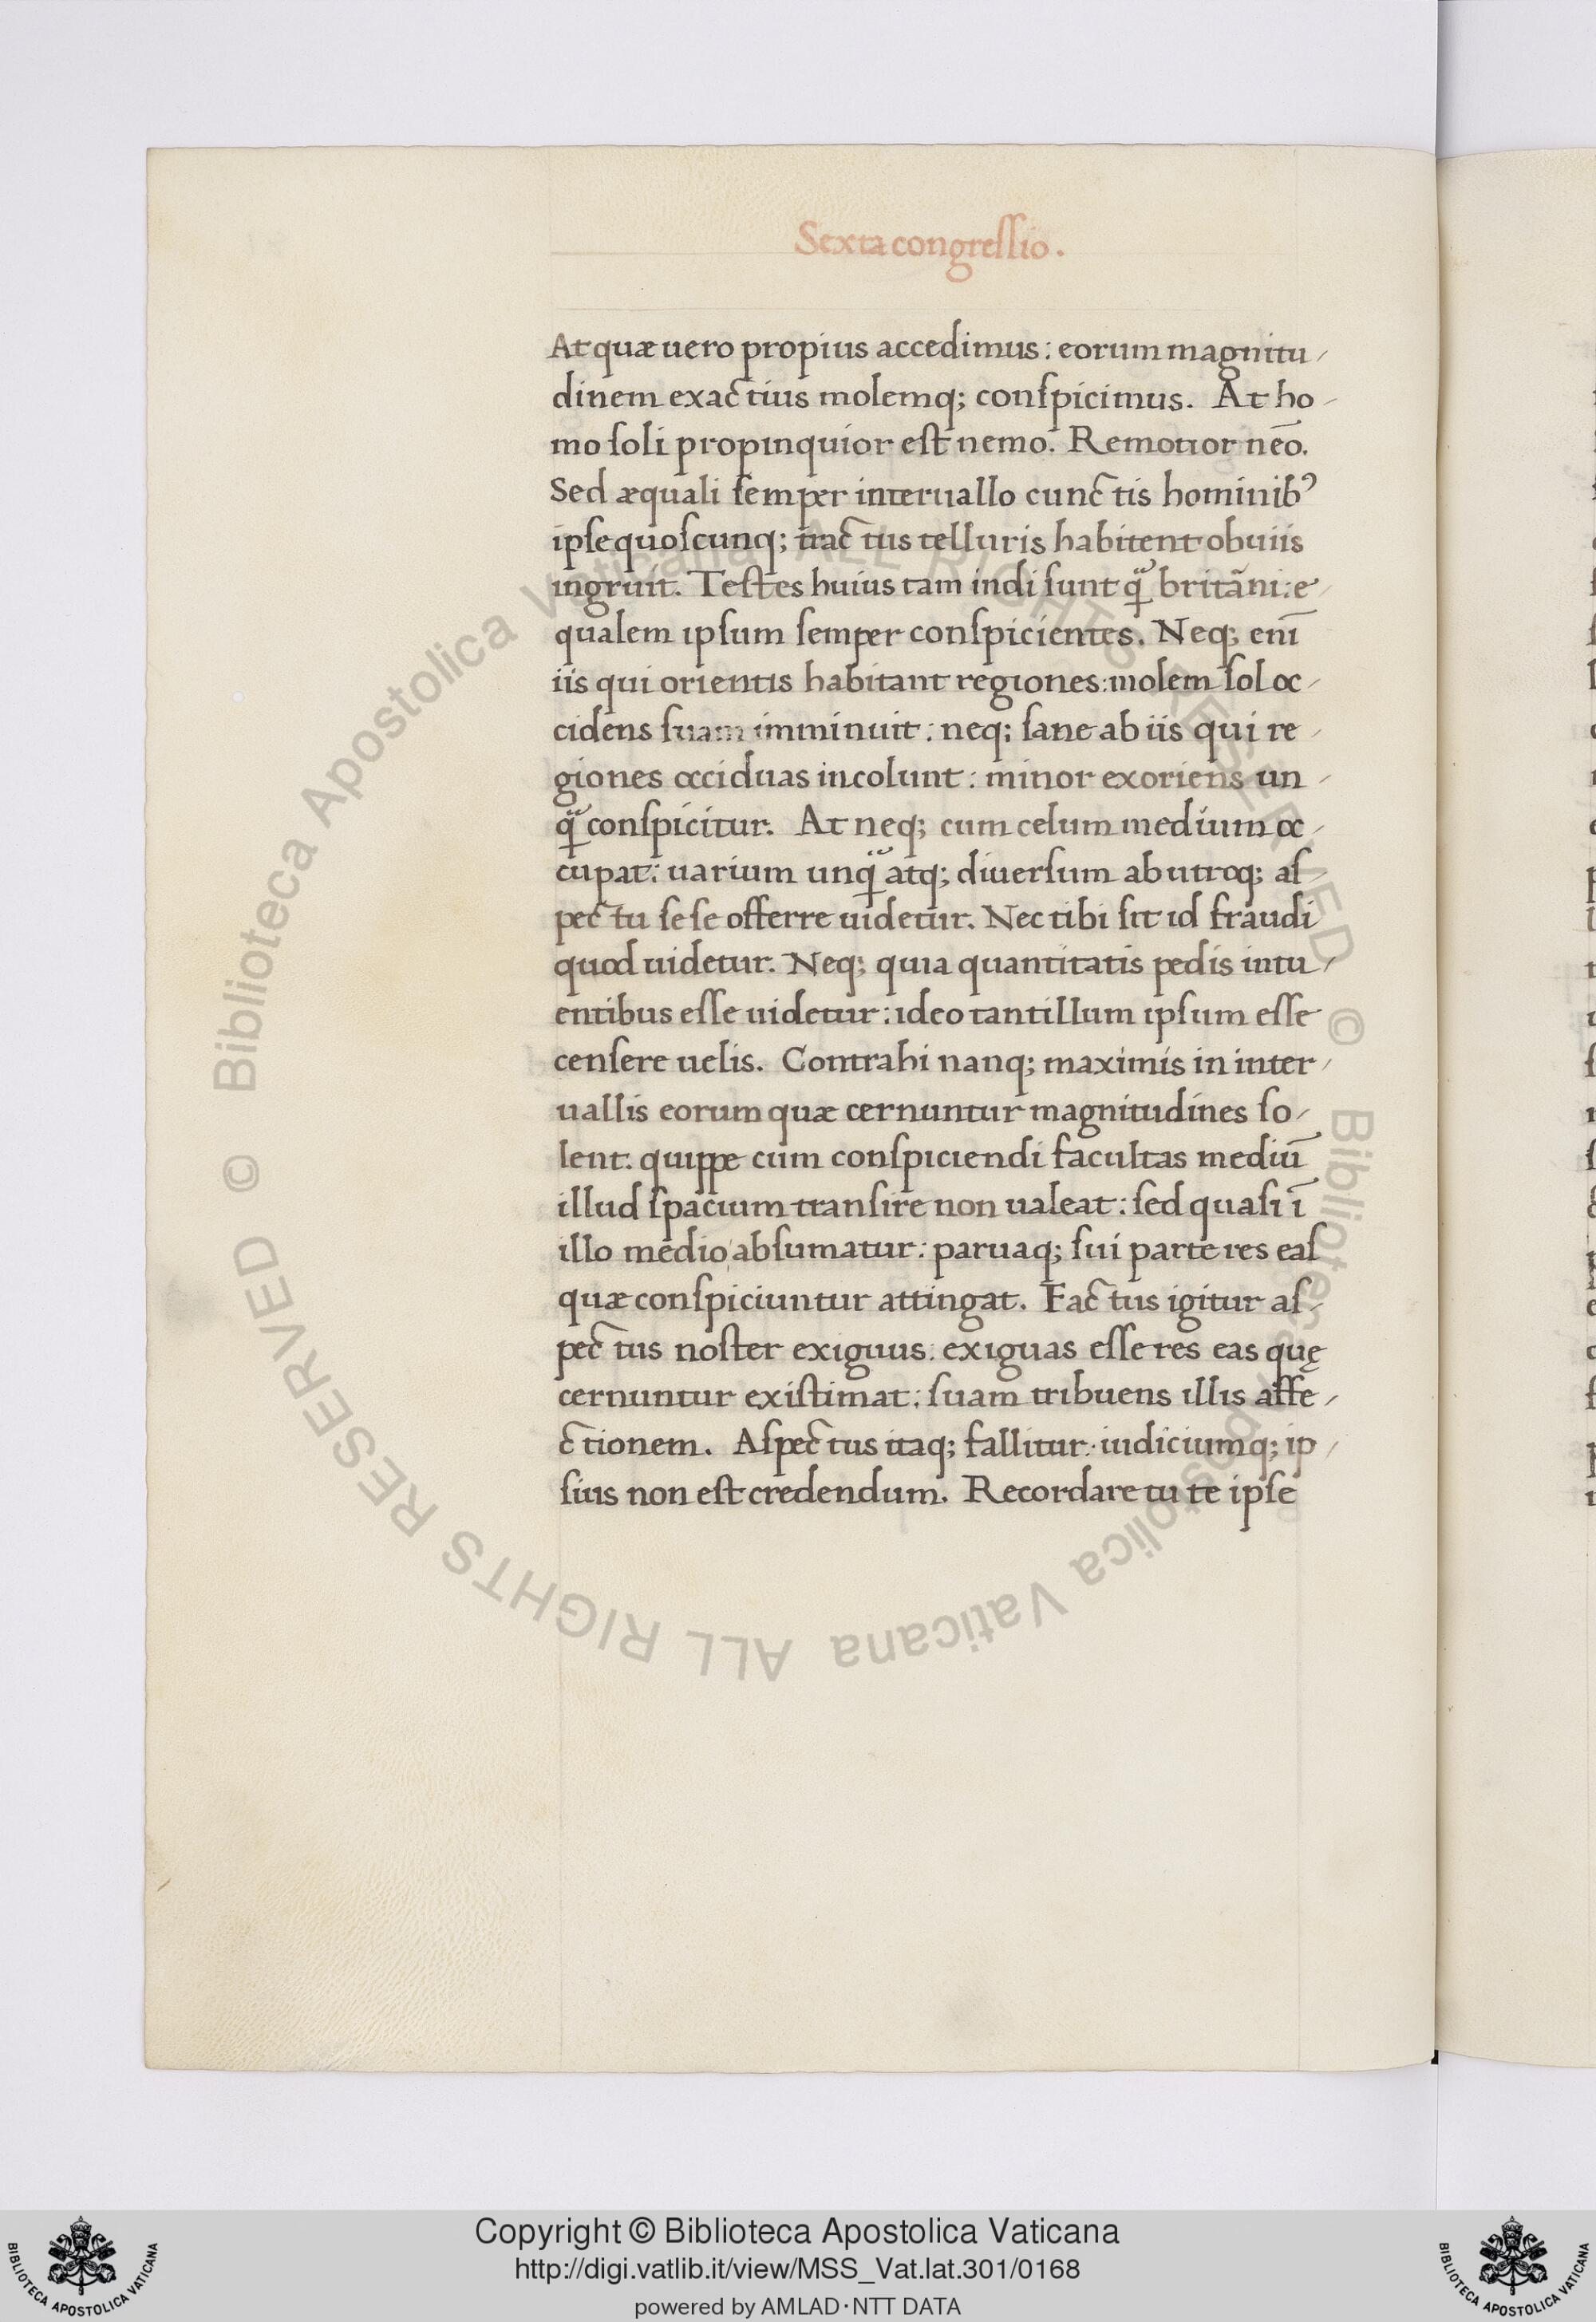 Sexta congressio.
At quæ uero propius accedimus: eorum magnitu/
dinem exactius molemq; conspicimus. At ho/
mo soli propinquior est nemo. Remotior nẽo.
Sed æquali semper interuallo cunctis hominib⁹
ipse quoscunq; tractus telluris habitent obuiis
ingruit. Testes huius tam indi sunt q̃ britãni: e/
qualem ipsum semper conspicientes. Neq; enĩ
iis qui orientis habitant regiones: molem sol oc/
cidens suam imminuit: neq; sane ab iis qui re/
giones occiduas incolunt: minor exoriens un/
q̃ conspicitur. At neq; cum celum medium oc/
cupat: uarium unq̃ atq; diuersum ab utroq; as/
pectu sese offerre uidetur. Nec tibi sit id fraudi
quod uidetur. Neq; quia quantitatis pedis intu/
entibus esse uidetur: ideo tantillum ipsum esse
censere uelis. Contrahi nanq; maximis in inter/
uallis eorum quæ cernuntur magnitudines so/
lent: quippe cum conspiciendi facultas mediũ
illud spacium transire non ualeat: sed quasi ĩ
illo medio absumatur: paruaq; sui parte res eas
quæ conspiciuntur attingat. Factus igitur as/
pectus noster exiguus: exiguas esse res eas quę
cernuntur existimat: suam tribuens illis affe/
ctionem. Aspectus itaq; fallitur: iudiciumq; ip/
sius non est credendum. Recordare tu te ipse
© Biblioteca Apostolica Vaticana ALL RIGHTS RESERVED © Biblioteca Apostolica Vaticana ALL RIGHTS RESERVED
BIBLIOTECA APOSTOLICA VATICANA
Copyright © Biblioteca Apostolica Vaticana
http://digi.vatlib.it/view/MSS_Vat.lat.301/0168
powered by AMLAD·NTT DATA
BIBLIOTECA APOSTOLICA VATICANA